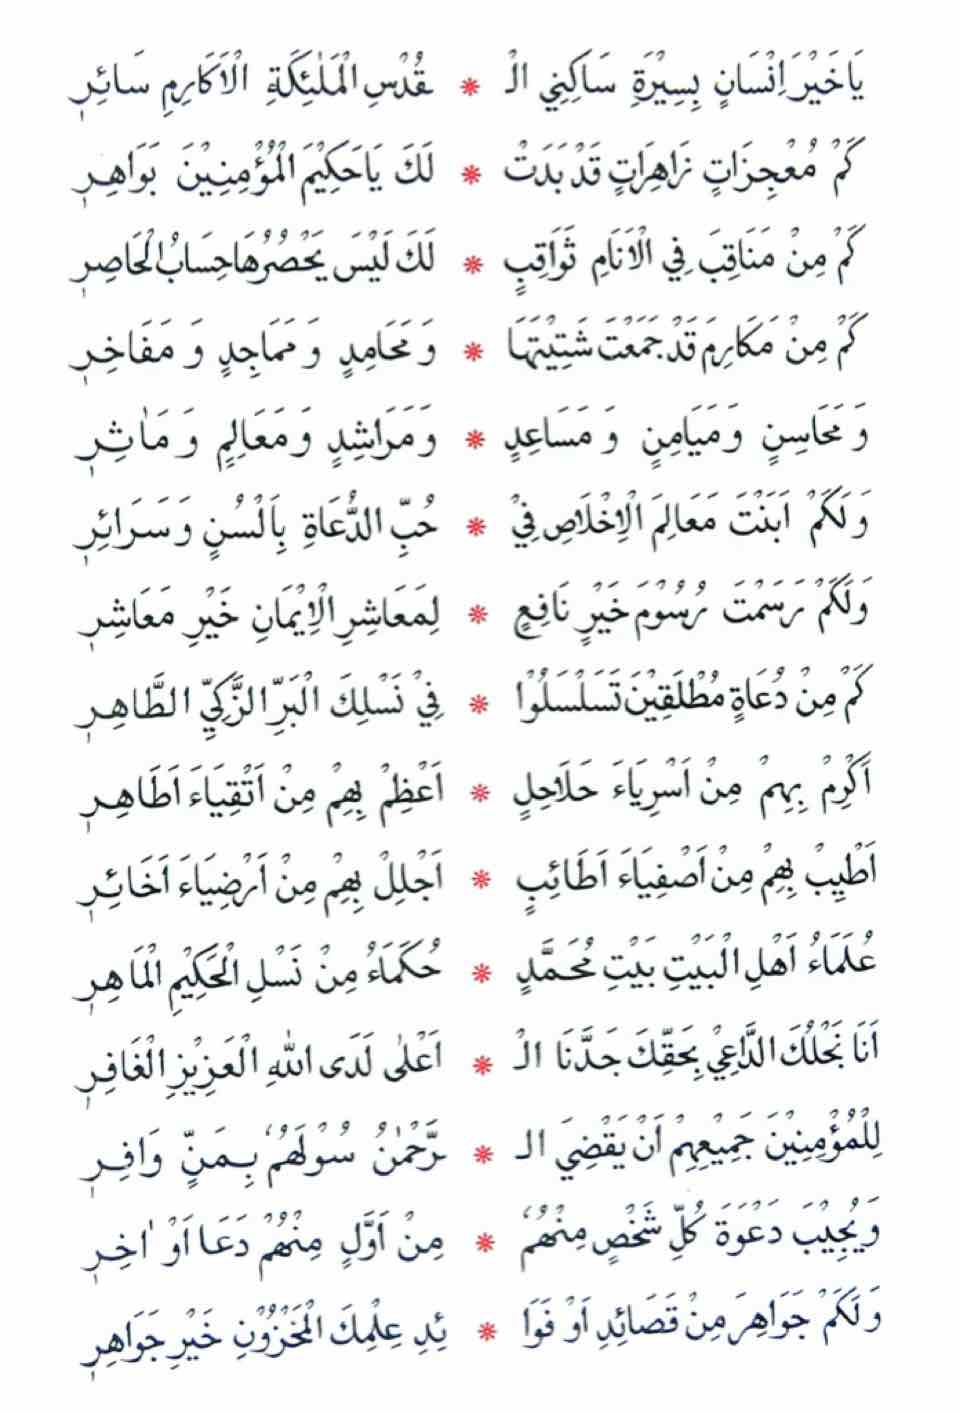 يَا خَيْرَ اِنْسَانٍ بِسِيْرَةِ سَاكِنِي الْـ * ـقُدْسِ الْمَلٰئِكَةِ الْاَكَارِمِ سَائِرِ
كَمْ مُعْجِزَاتٍ زَاهِرَاتٍ قَدْ بَدَتْ * لَكَ يَا حَكِيْمَ الْمُؤْمِنِيْنَ بَوَاهِرِ
كَمْ مِنْ مَنَاقِبَ فِي الْاَنَامِ ثَوَاقِبٍ * لَكَ لَيْسَ يَحْصُرُهَا حِسَابُ الْحَاصِرِ
كَمْ مِنْ مَكَارِمَ قَدْ جَمَعْتَ شَتِيْتَهَا * وَ مَحَامِدٍ وَ مَمَاجِدٍ وَ مَفَاخِرِ
وَ مَحَاسِنٍ وَ مَيَامِنٍ وَ مَسَاعِدٍ * وَ مَرَاشِدٍ وَ مَعَالِمٍ وَ مَاٰثِرِ
وَ لَكَمْ اَبَنْتَ مَعَالِمَ الْاِخْلَاصِ فِيْ * حُبِّ الدُّعَاةِ بِاَلْسُنٍ وَ سَرَائِرِ
وَ لَكَمْ رَسَمْتَ رُسُوْمَ خَيْرٍ نَافِعٍ * لِمَعَاشِرِ الْاِيْمَانِ خَيْرِ مَعَاشِرِ
كَمْ مِنْ دُعَاةٍ مُطْلَقِيْنَ تَسَلْسَلُوْا * فِيْ نَسْلِكَ الْبَرِّ الزَّكِيِّ الطَّاهِرِ
اَكْرِمْ بِهِمْ مِنْ اَسْرِيَاءَ حَلَاحِلٍ * اَعْظِمْ بِهِمْ مِنْ اَتْقِيَاءَ اَطَاهِرِ
اَطْيِبْ بِهِمْ مِنْ اَصْفِيَاءَ اَطَائِبٍ * اَجْلِلْ بِهِمْ مِنْ اَرْضِيَاءَ اَخَائِرِ
عُلَمَاءُ اَهْلِ الْبَيْتِ بَيْتِ مُحَمَّدٍ * حُكَمَاءُ مِنْ نَسْلِ الْحَكِيْمِ الْمَاهِرِ
اَنَا نَجْلُكَ الدَّاعِيْ بِحَقِّكَ جَدَّنَا الْـ * اَعْلٰى لَدَى اللهِ الْعَزِيْزِ الْغَافِرِ
لِلْمُؤْمِنِيْنَ جَمِيْعِهِمْ اَنْ يَقْضِيَ الـ * ـرَّحْمٰنُ سُوْلَهُمُ بِمَنٍّ وَافِرِ
وَ يُجِيْبَ دَعْوَةَ كُلِّ شَخْصٍ مِنْهُمُ * مِنْ اَوَّلٍ مِنْهُمْ دَعَا اَوْ اٰخِرِ
وَ لَكَمْ جَوَاهِرَ مِنْ قَصَائِدِ اَوْ فَوَا * ئِدِ عِلْمِكَ الْمَخْزُوْنِ خَيْرِ جَوَاهِرِ